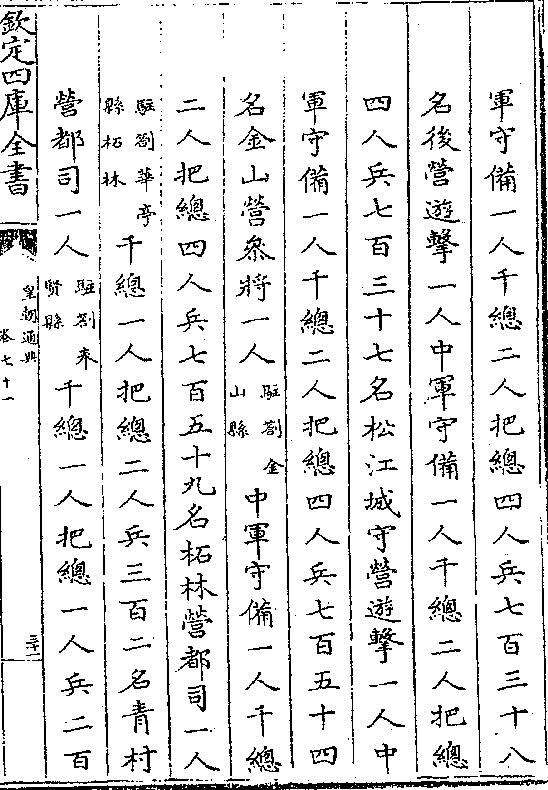 軍守備一人千總二人把總四人兵七百三十八
名後營遊擊一人中軍守備一人千總二人把總
四人兵七百三十七名松江城守營遊擊一人中
軍守備一人千總二人把總四人兵七百五十四
名金山營叅將一人駐劄金山縣中軍守備一人千總
二人把總四人兵七百五十九名柘林營都司一人
駐劄華亭縣柘林千總一人把總二人兵三百二名青村
營都司一人駐劄奉賢縣千總一人把總一人兵二百
欽定四庫全書
皇朝通典
卷七十一